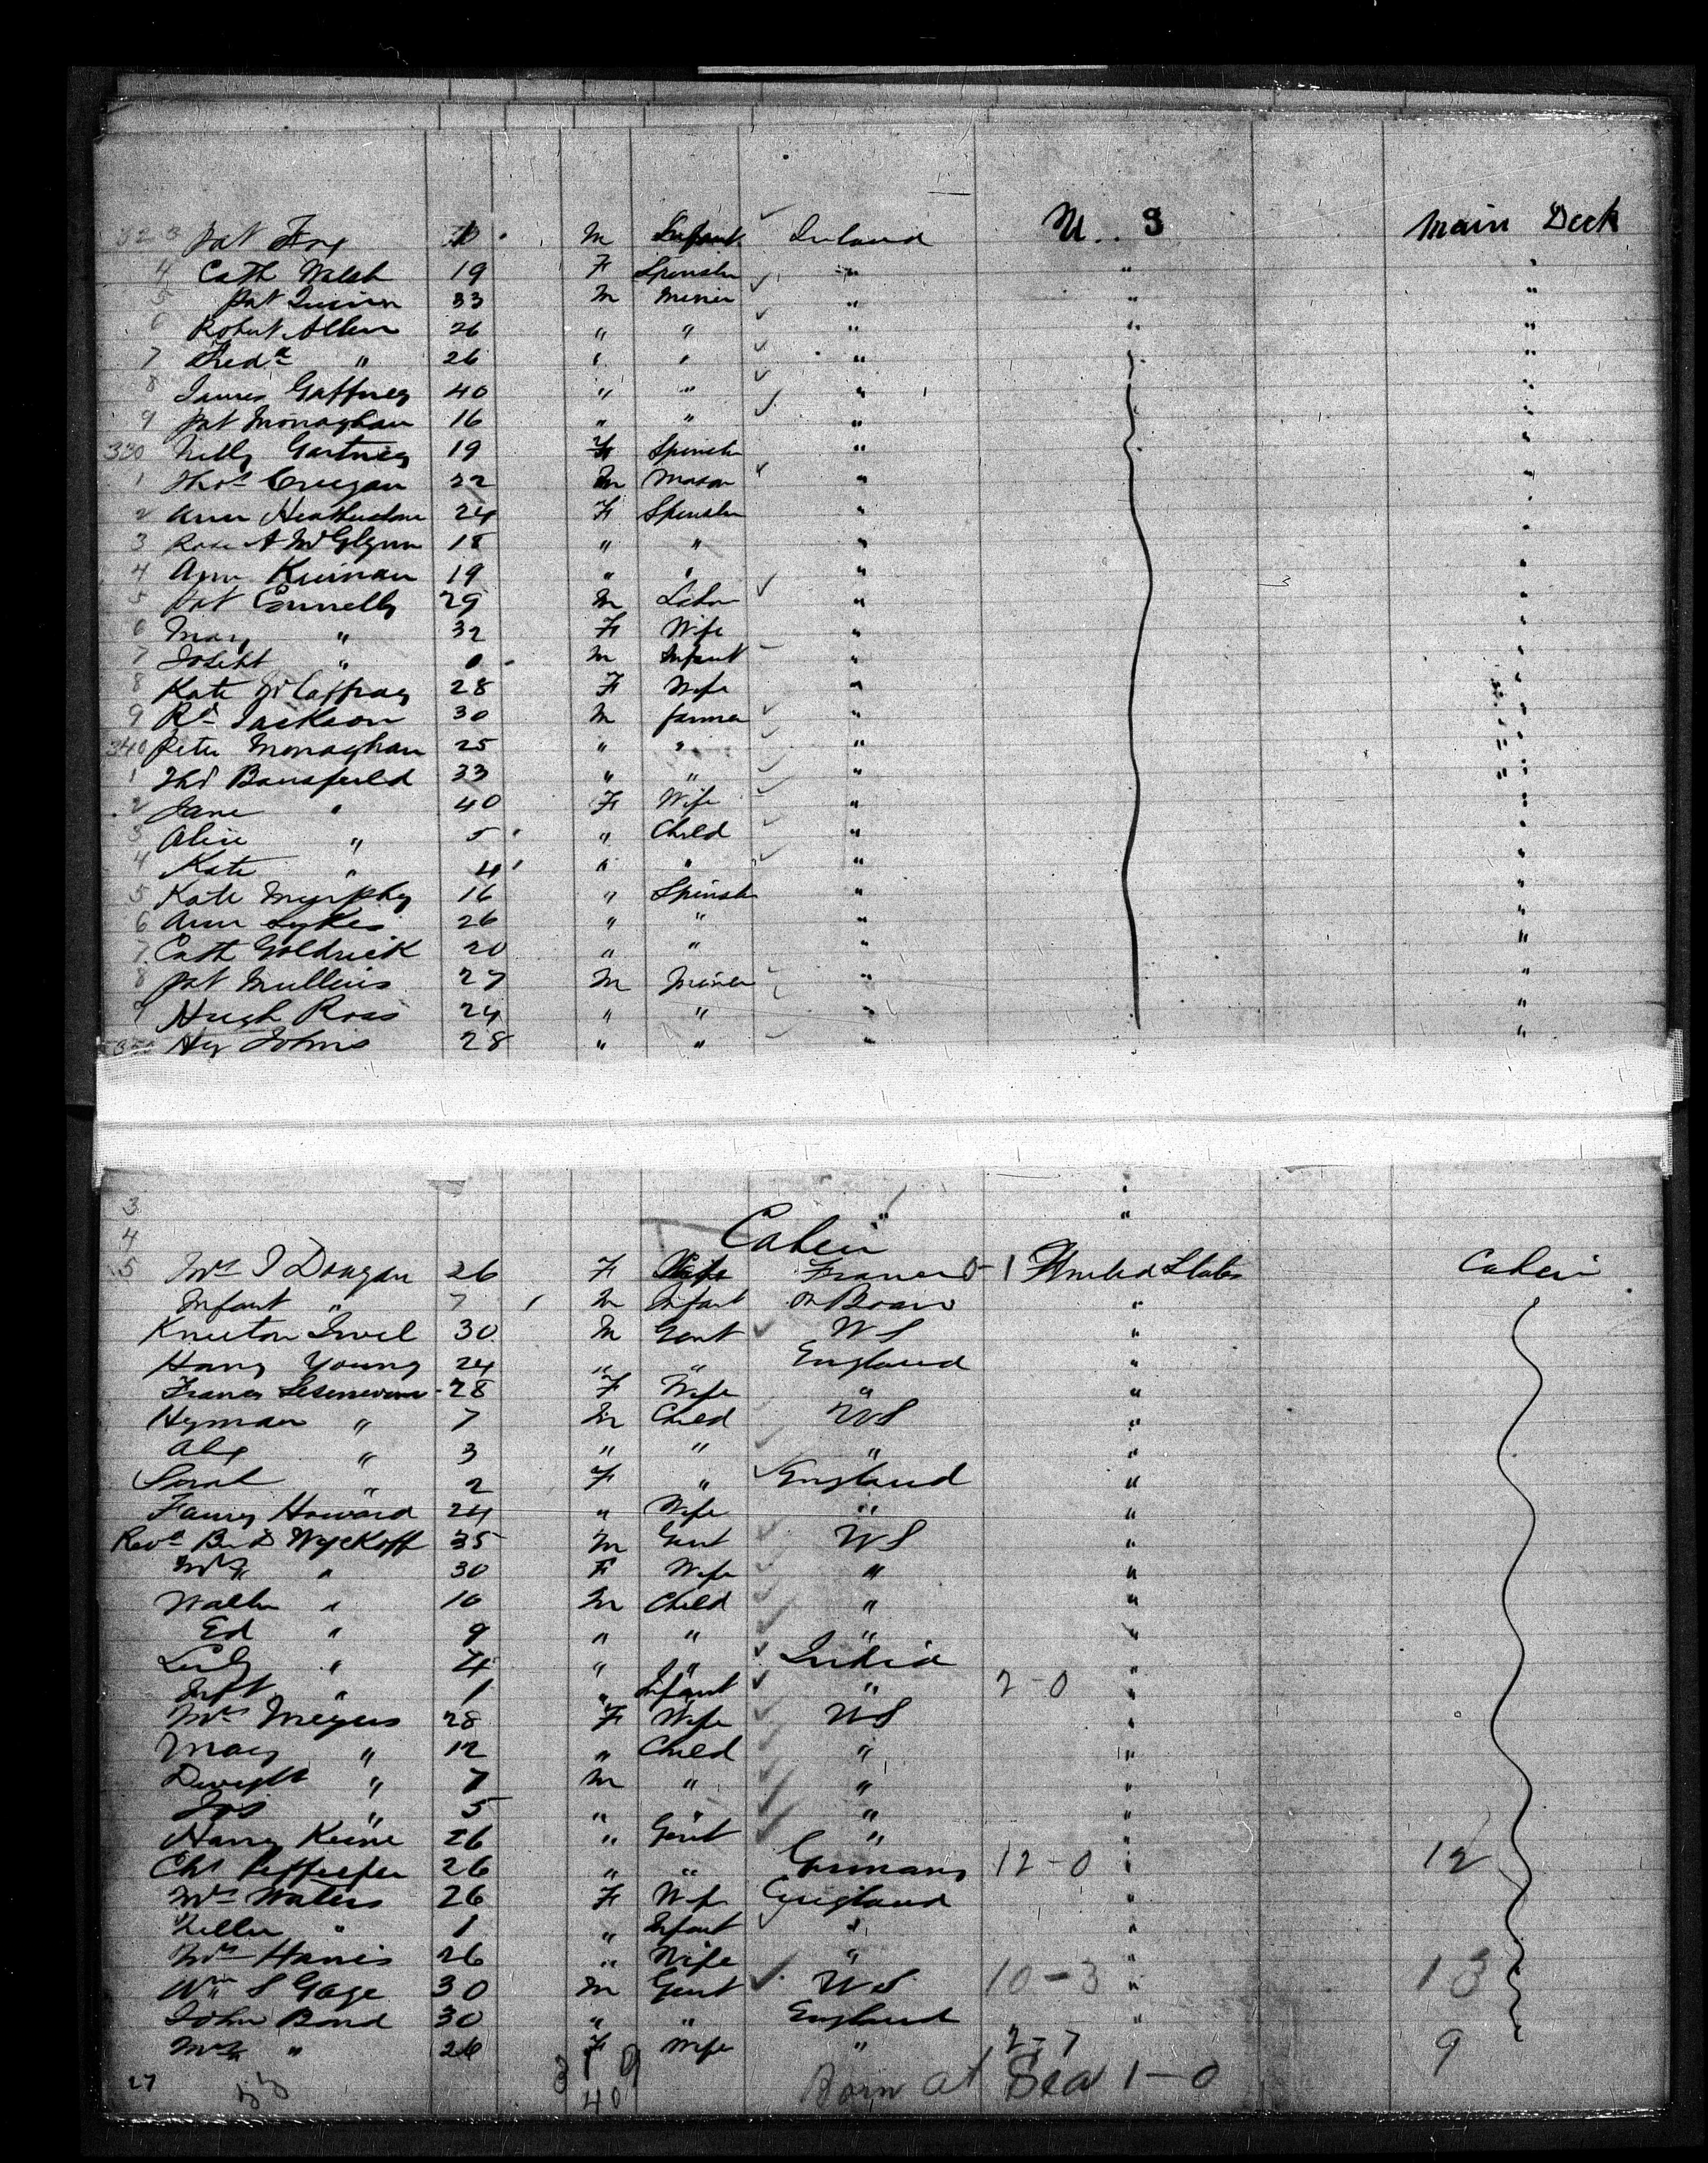 323 Pat Fox 1 M Infant Ireland U. S Main Deck
4 Cath Walsh 19 F Spinster " " "
5 Pat Quinn 33 M Miner " " "
6 Robert Allen 26 " " " " "
7 Fredk " 26 " " " " "
8 James Gaffney 40 " " " "
9 Pat Monaghan 16 " " " "
330 Nelly Gartney 19 F Spinster " "
1 Thos Creegan 22 M Mason " "
2 Ann 24 F Spinster "
3 Rose A McGlynn 18 " " " "
4 Ann Kiernan 19 " " " "
5 Pat Connelly 29 M Labor " "
6 Mary " 32 F Wife " "
7 Joseph " M Infant " "
8 Kate McCaffray 28 F Wife " "
9 Rd Jackson 30 M Farmer " "
340 Peter Monaghan 25 " " " "
1 Thos Bansfield 33 " " " "
2 Jane " 40 F Wife " "
3 Alice " 5 " Child " "
4 Kate " 4 " " " "
5 Kate Murphy 16 " Spinster " "
6 Ann Sykes 26 " " " "
7 Cath Goldrick 20 " " " "
8 Pat Mullins 27 M Miner " "
9 Hugh Ross 24 " " " "
350 Hy Johns 28 " " " "
3 "
4 Cabin "
5 Mrs J Dougan 26 F Wife France 0-1 United States Cabin
Infant " 7 M Infant On Board "
30 M Gent US "
Harry Young 24 " " England "
Frances 28 F Wife " "
Hyman " 7 M Child US "
Alex " 3 " " " "
Sarah " 2 F " England "
Fanny Howard 24 " Wife " "
Revd B D Wyckoff 35 M Gent US "
Mrs " 30 F Wife " "
Walter " 10 M Child " "
Ed " 9 " " " "
" 4 " " India "
Inft " 1 " Infant " 2-0 "
Mrs Meyers 28 F Wife US "
Mary " 12 " Child " "
Dwight " 7 M " " "
Jos " 5 " " " "
Harry Keene 26 " Gent " "
Chs 26 " " Germany 12-0 " 12
Mrs Waters 26 F Wife England "
Nellie " 1 " Infant " "
Mrs Harris 26 " Wife " "
Wm S Gage 30 M Gent US 10-3 " 13
John Bond 30 " " England "
Mrs " 26 F Wife " 2-7 9
27 319 Born at Sea 1-0
40